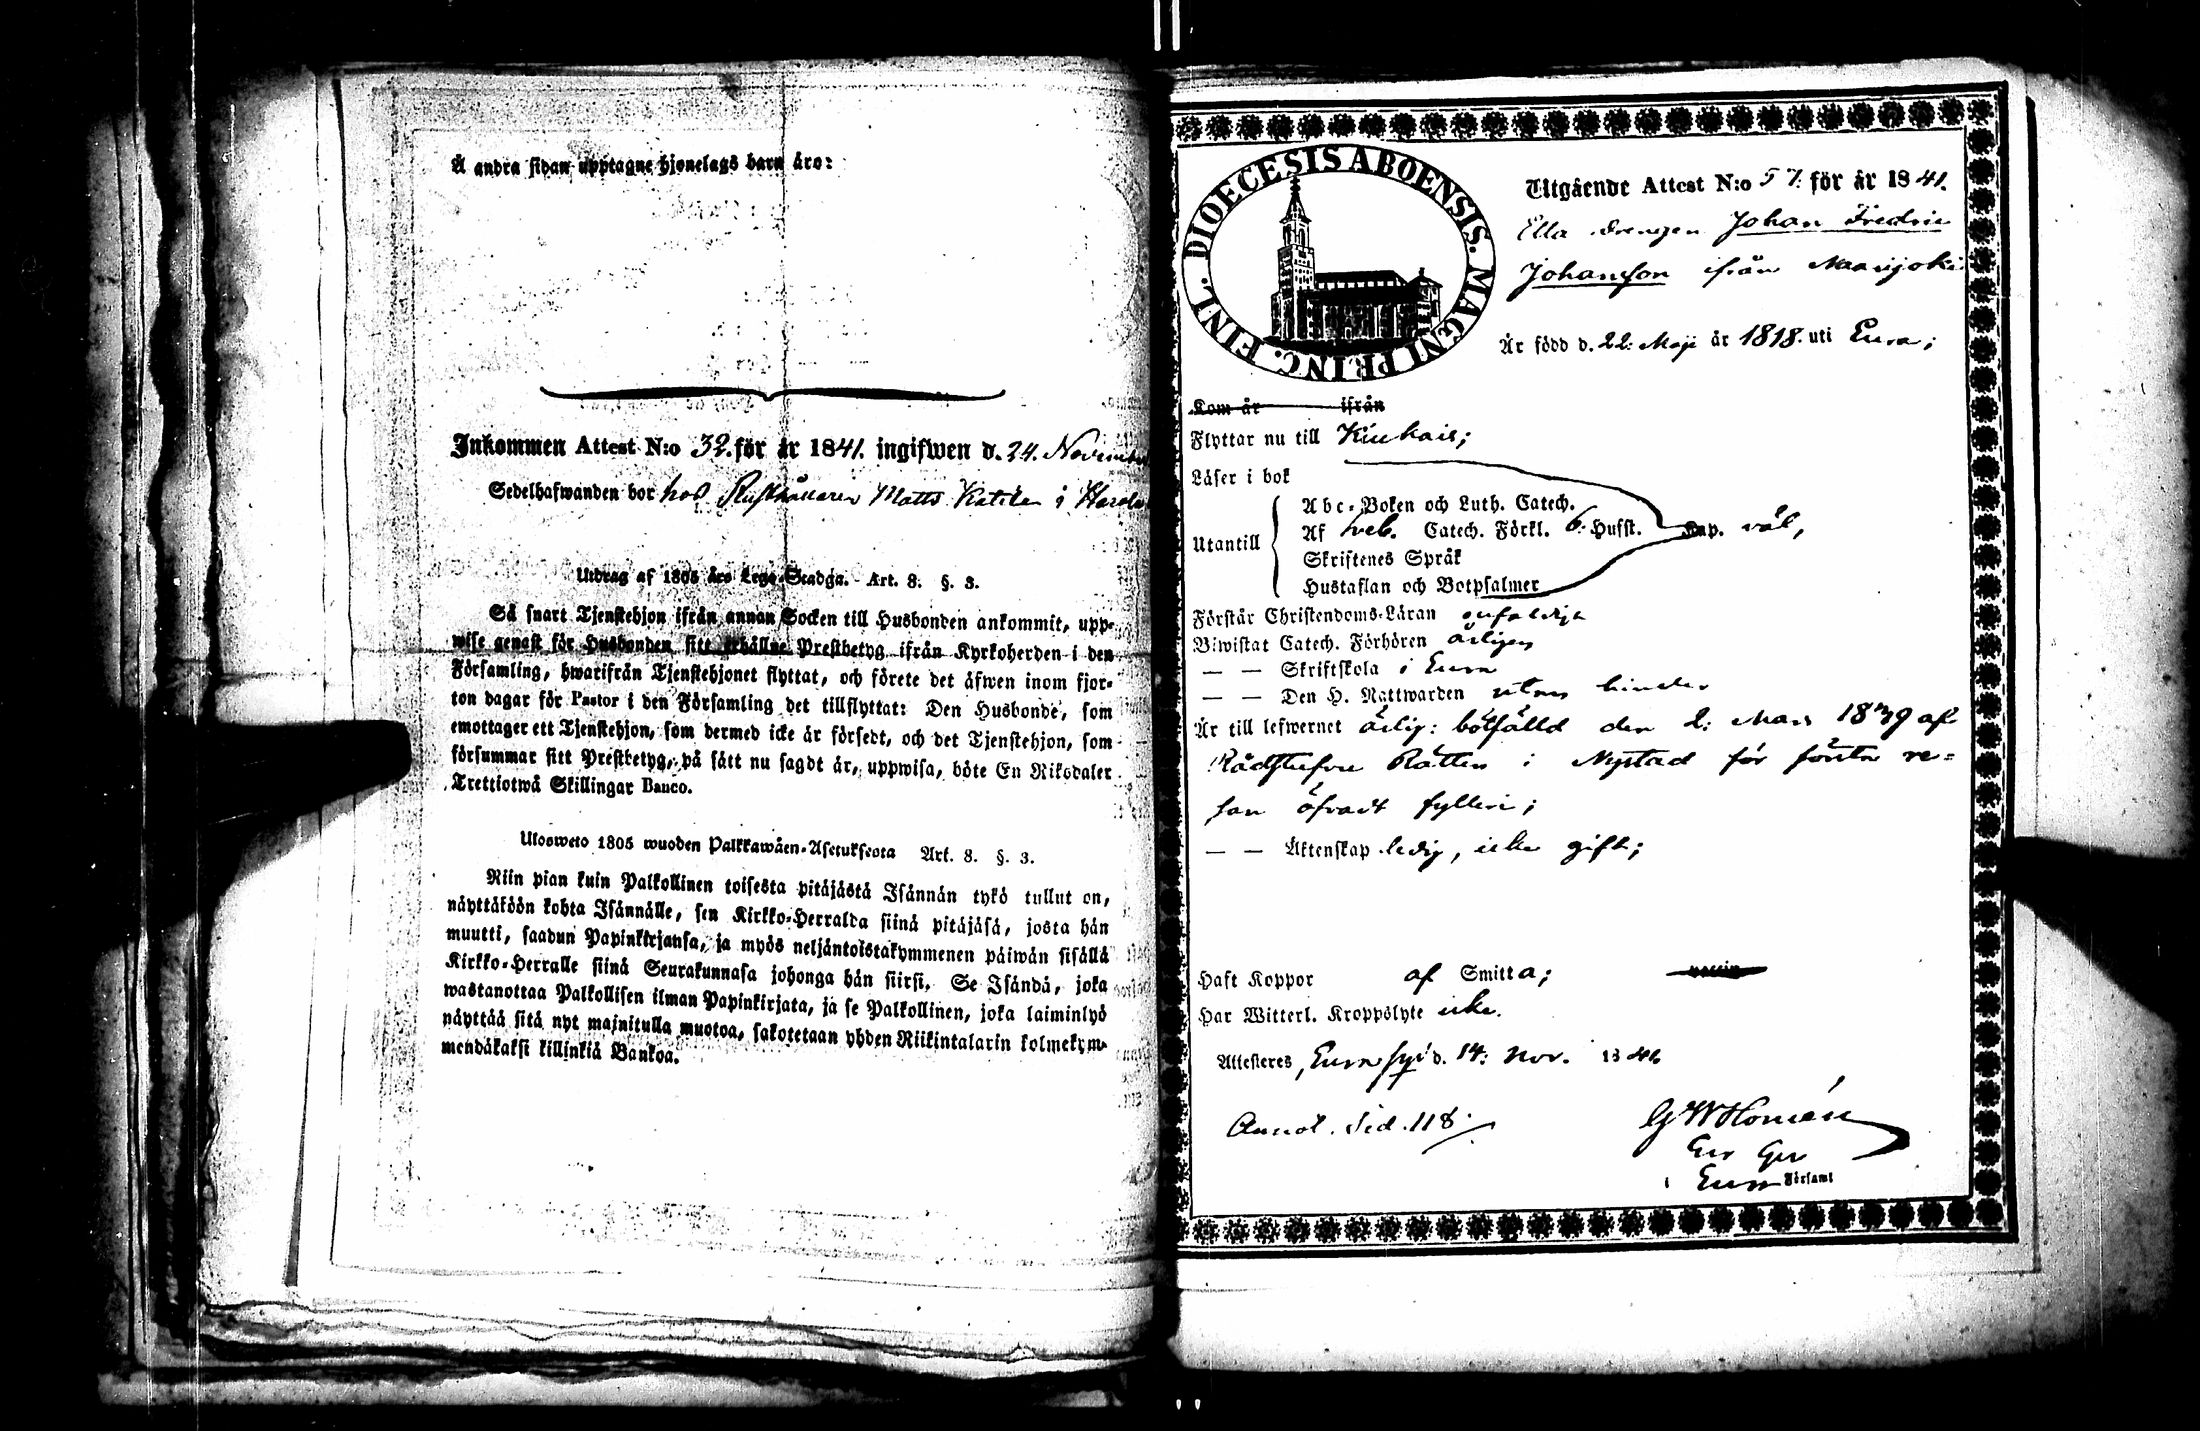 Å andra sidan upptagne hjonelags barn äro:
Inkommen Attest N:o 32. för år 1841. ingifwen d. 24. November
Sedelhafwanden bor hos Rusthållaren Matts Katila i
Utdrag af 1805 års Lego-Stadga. Art. 8. §. 3.
Så snart Tjenstehjon ifrån annan Socken till Husbonden ankommit, upp-
wise genast för Husbonden sitt erhållne Prestbetyg ifrån Kyrkoherden i den
Församling, hwarifrån Tjenstehjonet flyttat, och förete det äfwen inom fjor-
ton dagar för Pastor i den Församling det tillflyttat: Den Husbonde, som
emottager ett Tjenstehjon, som dermed icke är försedt, och det Tjenstehjon, som
försummar sitt Prestbetyg, på sätt nu sagdt är, uppwisa, böte En Riksdaler
Trettiotwå Skillingar Banco.
Ulosweto 1805 wuoden Palkkawäen-Asetuksesta Art. 8. §. 3.
Niin pian kuin Palkollinen toisesta pitäjästä Isännän tykö tullut on,
näyttäköön kohta Isännälle, sen Kirkko-Herralda siinä pitäjäsä, josta hän
muutti, saadun Papinkirjansa, ja myös neljäntoistakymmenen päiwän sisällä
Kirkko-Herralle siinä Seurakunnasa johonga hän siirsi. Se Isändä, joka
wastanottaa Palkollisen ilman Papinkirjata, ja se Palkollinen, joka laiminlyö
näyttää sitä nyt mainitulla muotoa, sakotetaan yhden Riikintalarin kolmekym-
mendäkaksi killinkiä Bankoa.
DIOECESIS ABOENSIS. MAGNI PRINC. FINL.
Utgående Attest N:o 57. för år 1841.
Ella drengen Johan Fredric
Johansson ifrån Naarjoki
Är född d. 22: Maji år 1818. uti Eura;
Kom år ifrån
Flyttar nu till Kiukais;
Läser i bok
Abc-Boken och Luth. Catech.
Utantill Af Sveb. Catech. Förkl. 6. Hufst. Kap. väl,
Skriftenes Språk
Hustaflan och Botpsalmer
Förstår Christendoms-Läran enfaldigt
Biwistat Catech. Förhören årligen
— — Skriftskola i Eura
— — Den H. Nattwarden utan hinder
Är till lefwernet ärlig: bötfälld den 2: Mars 1839 af
Rådstufvu Rätten i Nystad för första re=
san öfvadt fylleri;
— — Äktenskap ledig, icke gift;
Haft Koppor af Smitta;
Har Witterl. Kroppslyte icke.
Attesteres, Eura d. 14: Nov. 1841
Annot. Sid. 118.
G W Homén
i Eura Församl